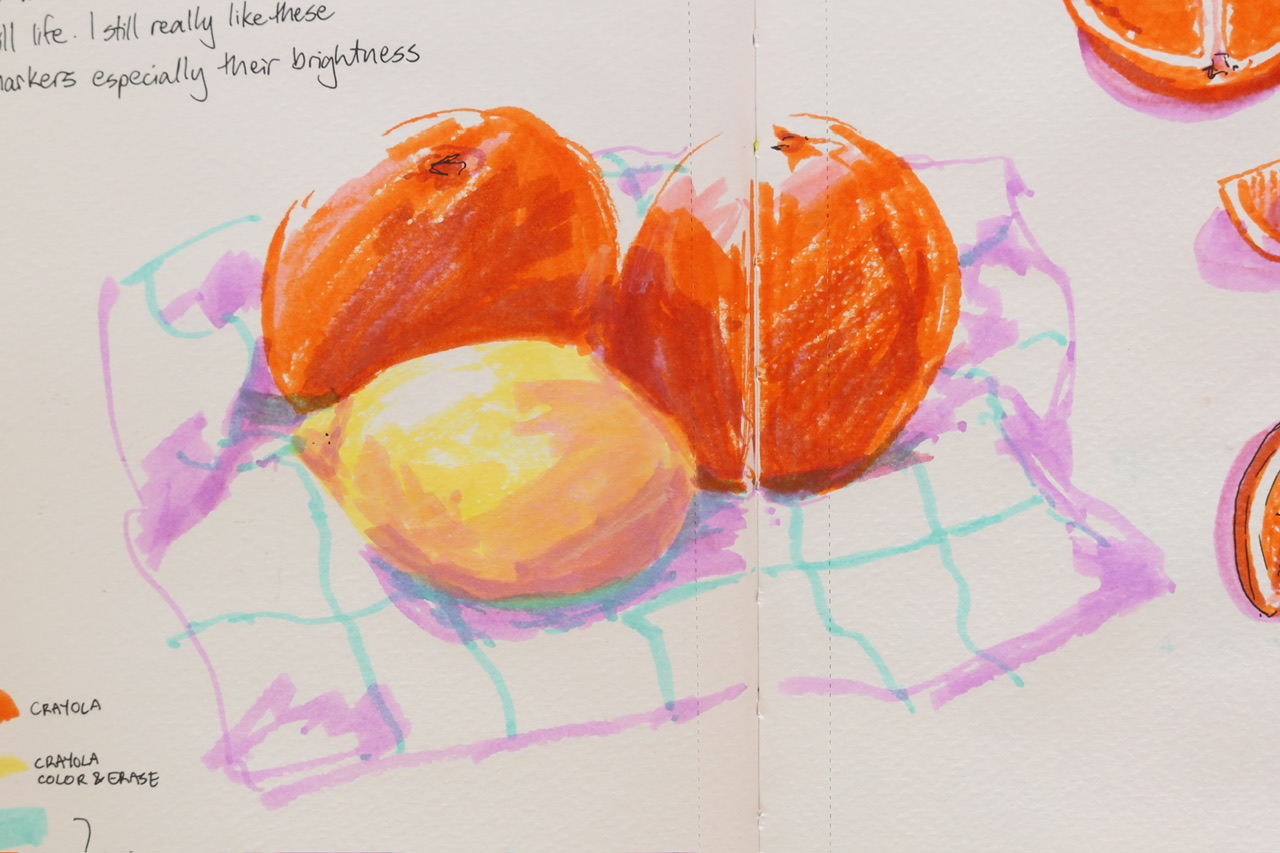 ill life. I still really like these
markers especially their brightness
CRAYOLA
CRAYOLA
COLOR & ERASE
?